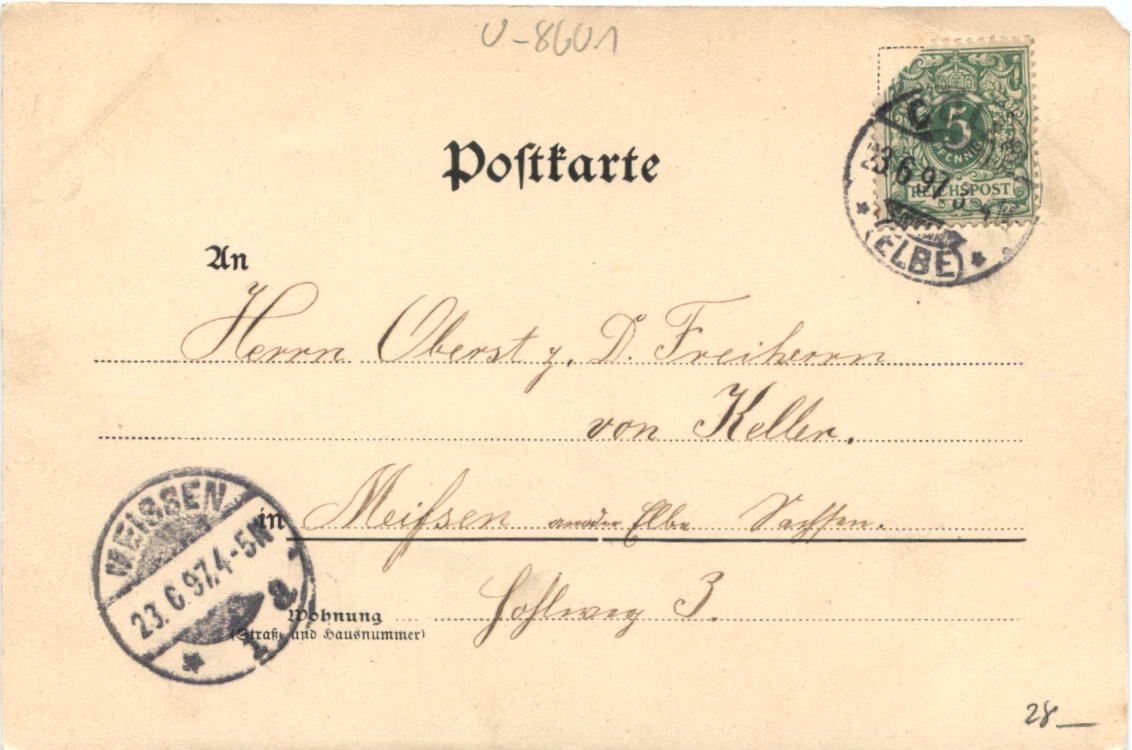 U-8601
Postkarte
5
PFENNIG
REICHSPOST
23.6.97
(ELBE)
An
Herrn Oberst z. D. Freiherrn
von Keller.
in Meißen an der Elbe Sachsen.
MEISSEN
23.6.97.4-5N
1 a
Wohnung
(Straße und Hausnummer)
Hohlweg 3.
28_